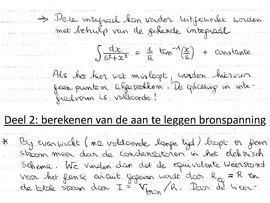 → Deze integraal kan verder uitgewerkt worden
met behulp van de gekende integraal
∫ dx/(a²+x²) = 1/a tan⁻¹(x/a) + constante
Als het hier wat misloopt, worden hiervan
geen punten afgetrokken. De oplossing in inte-
graalvorm is voldoende!
Deel 2: berekenen van de aan te leggen bronspanning
* Bij evenwicht (na voldoende lange tijd) loopt er geen
stroom meer door de condensatoren in het elektrisch
schema. We vinden dan dat de equivalente weerstand
voor het ganse circuit gegeven wordt door R = R en
de totale stroom door I = V bron / R. Door de weer-